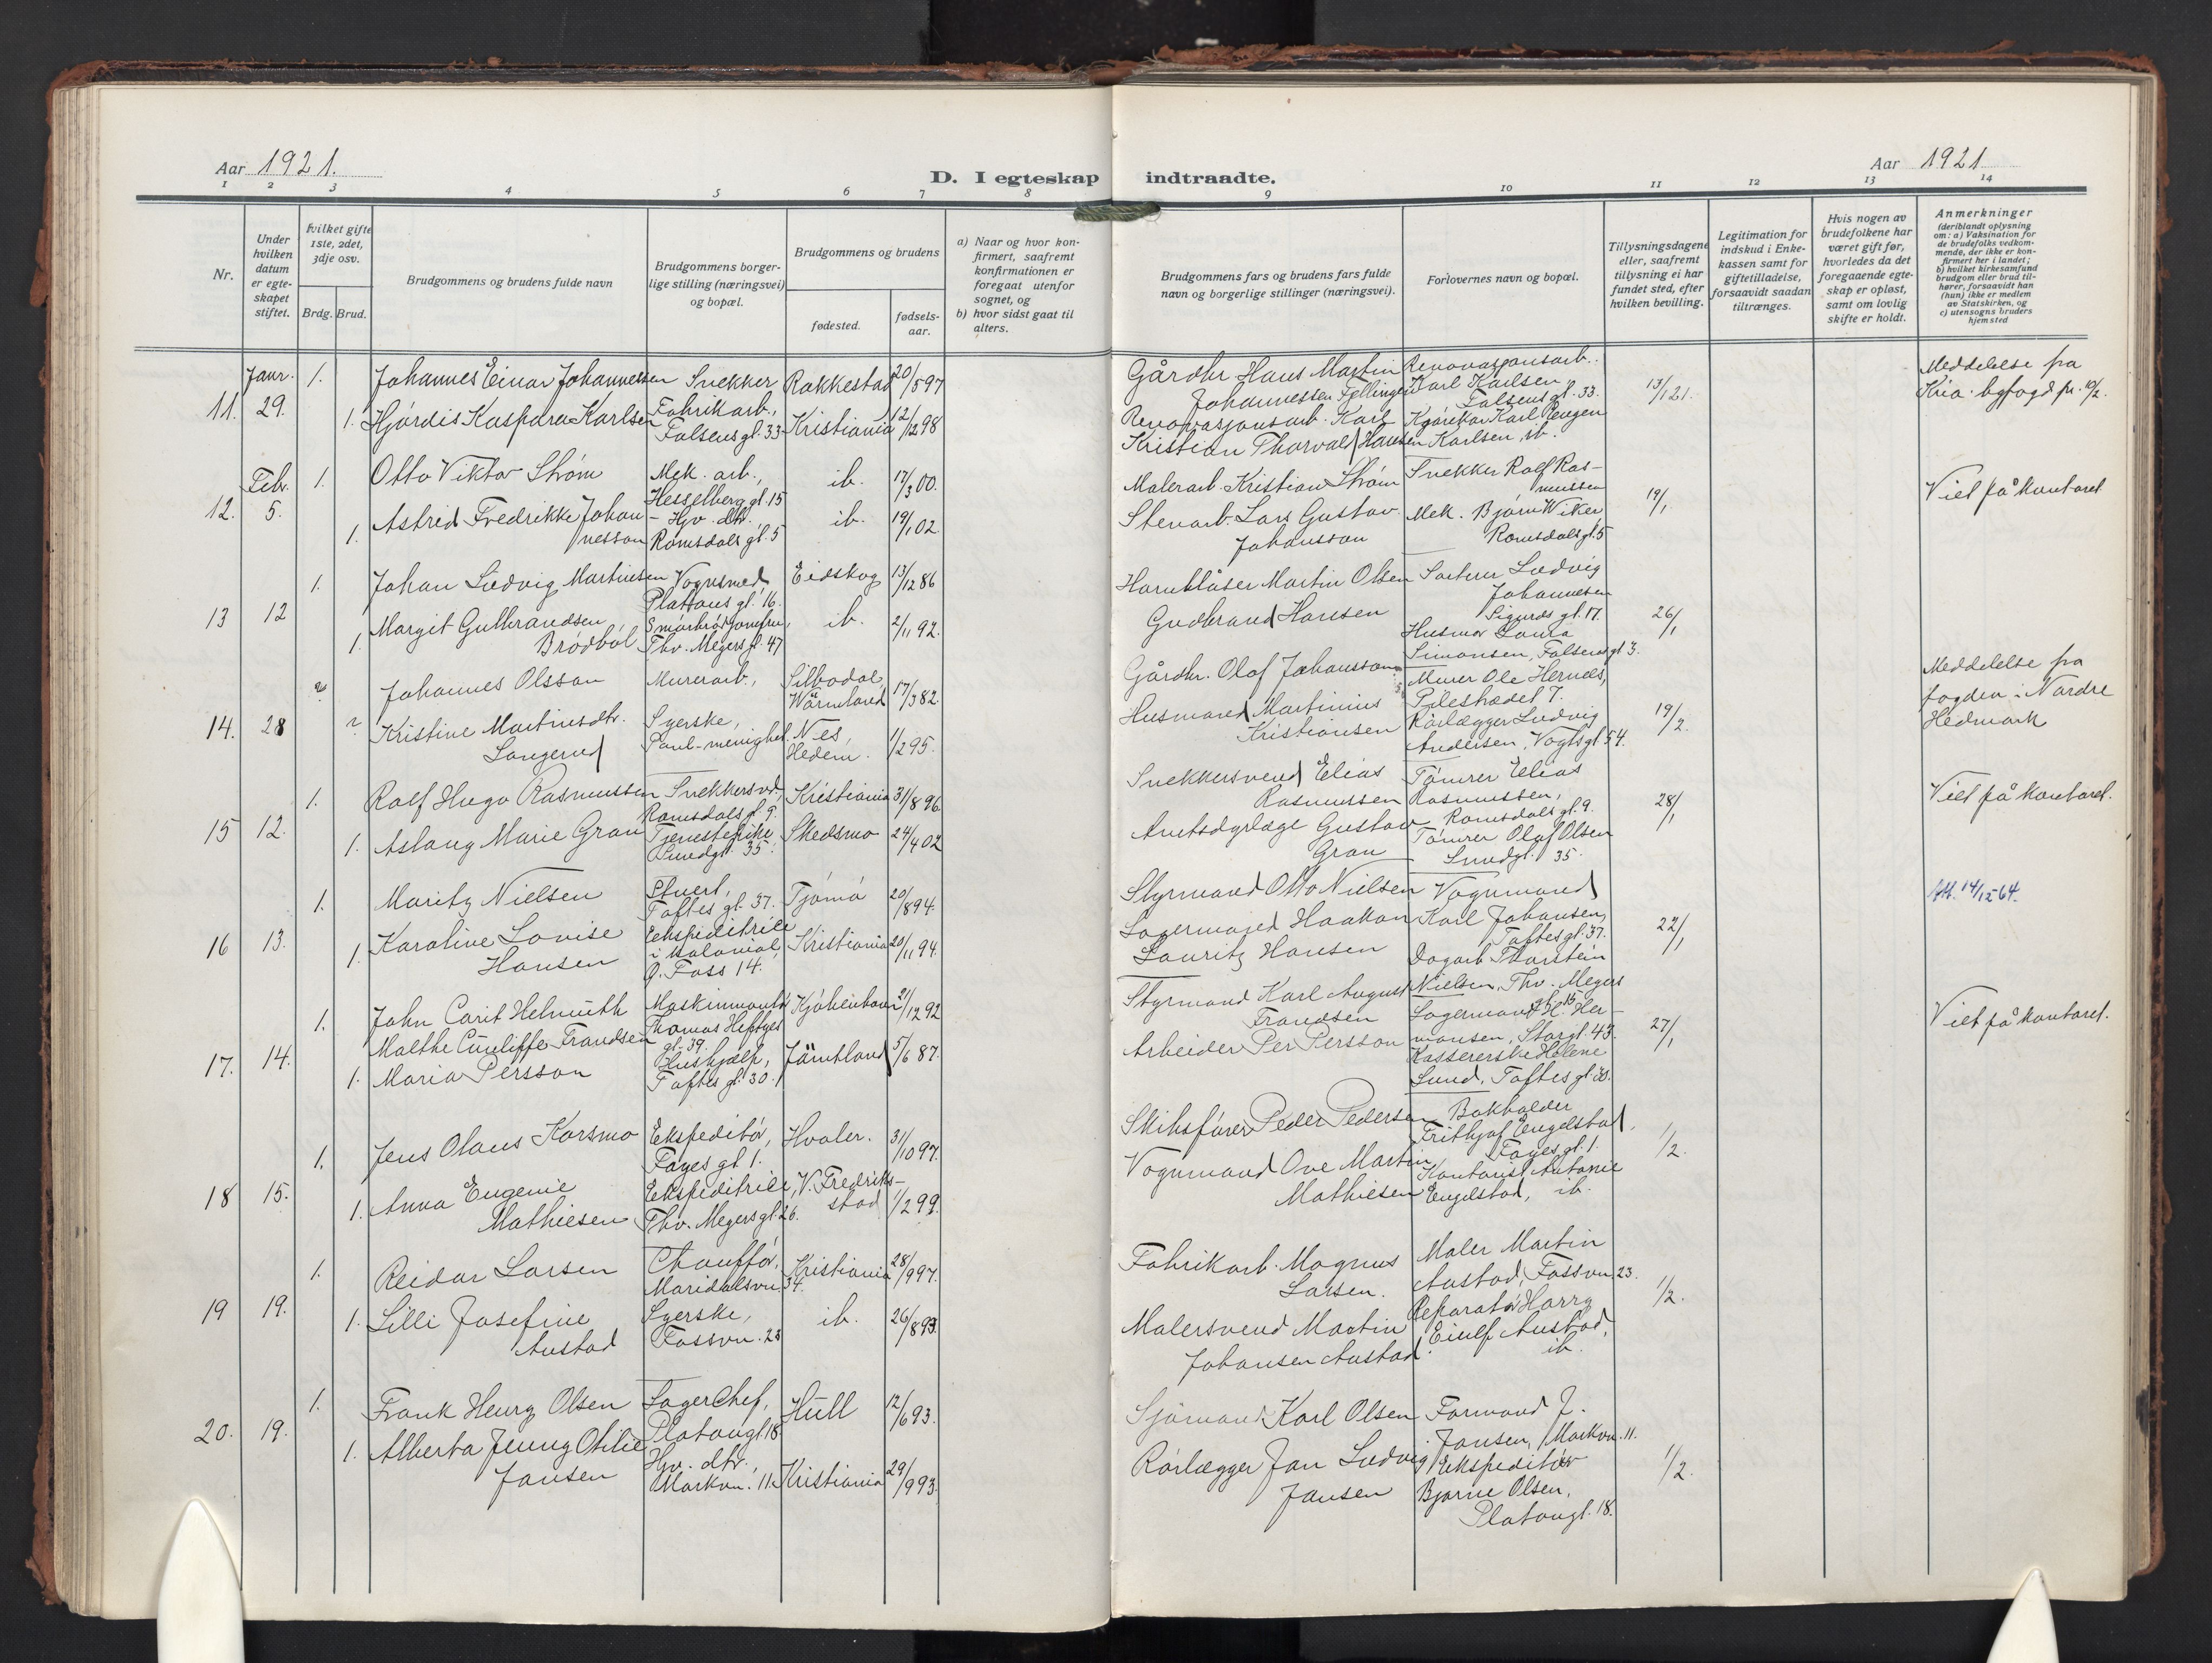 Aar 1921.
D. I egteskap indtraadte.
Aar 1921
1 2 3 4 5 6 7 8 9 10 11 12 13 14
Nr.
Under hvilken datum er egteskapet stiftet.
hvilket gifte 1ste, 2det, 3dje osv.
Brdg. Brud.
Brudgommens og brudens fulde navn
Brudgommens borgerlige stilling (næringsvei) og bopæl.
Brudgommens og brudens
fødested.
fødselsaar.
a) Naar og hvor konfirmert, saafremt konfirmationen er foregaat utenfor sognet, og
b) hvor sidst gaat til alters.
Brudgommens fars og brudens fars fulde navn og borgerlige stillinger (næringsvei).
Forlovernes navn og bopæl.
Tillysningsdagene eller, saafremt tillysning ei har fundet sted, efter hvilken bevilling.
Legitimation for indskud i Enkekassen samt for giftetilladelse, forsaavidt saadan tiltrænges.
Hvis nogen av brudefolkene har været gift før, hvorledes da det foregaaende egteskap er opløst, samt om lovlig skifte er holdt.
Anmerkninger (deriblandt oplysning om: a) Vaksination for de brudefolks vedkommende, der ikke er konfirmert her i landet; b) hvilket kirkesamfund brudgom eller brud tilhører, forsaavidt han (hun) ikke er medlem av Statskirken, og c) utensogns bruders hjemsted
11. Janr. 29.
1. Johannes Einar Johannessen Snekker Rakkestad 20/5 97
1. Hjørdis Kaspara Karlsen Fabrikarb., Falsens gt. 33 Kristiania 12/12 98
Gårdbr. Hans Martin Johannessen Fjellinger
Renovasjonsarb. Karl Kristian Thorvald Hansen
Renovasjonsarb. Karl Karlsen Falsens gt. 33.
Kjørekar Karl Eugen Karlsen, ib.
13/1 21.
Meddelelse fra Kria. byfogd pr. 10/2.
12. Febr. 5.
1. Otto Viktor Strøm Mek. arb., Hesselberg gt. 15 ib. 17/3 00.
1. Astrid Fredrikke Johannesson Hjv. dtr. Romsdals gt. 5 ib. 19/1 02.
Malerarb. Kristian Strøm
Stenarb. Lars Gustav Johansson
Snekker Rolf Rasmussen
Mek. Bjarne Wiker Romsdals gt. 5
19/1
Viet på kontoret
13 12
1. Johan Ludvig Martinsen Vognsmed, Platous gt. 16. Eidskog 13/12 86
1. Margit Gulbrandsen Brødbøl Smørbrødjomfru, Thv. Meyers gt. 47 ib. 2/11 92.
Hornblåser Martin Olsen
Gudbrand Hansen
Sorterer Ludvig Johannesen Sigurds gt. 17.
Husmor Laura Simonsen, Falsens gt 3.
26/1
14. 28
Johannes Olsson Murerarb., Silbodal, Wärmland 17/3 82.
Kristine Martinsdtr. Langerud Syerske, Paul-menighet. Nes, Hedem. 1/2 95.
Gårdbr. Olof Johansson
Husmand Martinius Kristiansen
Murer Ole Hernes, Pilestrædet 7.
Rørlægger Ludvig Andersen, Vogts gt 54.
19/2.
Meddelelse fra fogden i Nordre Hedmark
15 12.
1. Rolf Hugo Rasmussen Snekkersvd., Romsdals gt. 9. Kristiania 31/8 96.
1. Aslaug Marie Gran Tjenestepike Sundgt. 35. Skedsmo 24/4 02
Snekkersvend Elias Rasmussen
Amtsdyrlæge Gustav Gran
Tømrer Elias Rasmussen, Romsdals gt. 9.
Tømrer Olaf Olsen Sundgt. 35.
28/1
Viet på kontoret.
16 13.
1. Moritz Nielsen Stuert, Toftes gt. 37. Tjømø 20/8 94.
1. Karoline Lovise Hansen Ekspeditrice i kolonial, Ø. Foss 14. Kristiania 20/11 94.
Styrmand Otto Nielsen
Lagermand Haakon Lauritz Hansen
Vognmand Karl Johansen, Toftes gt. 37.
Dagarb. Thorstein Nielsen, Thv. Meyers gt. 15
22/1
14/12 64.
17. 14.
1. John Carit Helmuth Malthe Cunliffe Frandsen Maskinmontør Thomas Heftyes gt. 39. Kjøbenhavn 21/12 92
1. Maria Persson Hushjælp, Toftes gt. 30. Jämtland 5/6 87.
Styrmand Karl August Frandsen
Arbeider Per Persson
Lagermand H. Hermansen, Storgt. 43.
Kassererske Helene Lund, Toftes gt. 30.
27/1
Viet på kontoret.
18 15.
1. Jens Olaus Korsmo Ekspeditør, Føyes gt. 1. Hvaler. 31/10 97.
1. Anna Eugenie Mathiesen Ekspeditrice, Thv. Meyers gt. 26. V. Fredrikstad 1/2 99.
Skibsfører Peder Pedersen
Vognmand Ove Martin Mathiesen
Bokholder Frithjof Engelstad, Føyes gt. 1.
Kontorist Antonie Engelstad, ib.
1/2.
19 19.
1. Reidar Larsen Chauffør, Maridalsvn. 34. Kristiania 28/9 97.
1. Lilli Josefine Austad Syerske, Fossvn. 23 ib. 26/8 93.
Fabrikarb. Magnus Larsen.
Malersvend Martin Johansen Austad.
Maler Martin Austad, Fossvn. 23.
Reparatør Harry Eiulf Austad, ib.
1/2.
20. 19.
1. Frank Henry Olsen Lagerchef, Platougt. 18 Hull 12/6 93.
1. Alberta Jenny Otilie Jansen Hjv. dtr., Markvn. 11. Kristiania 29/9 93.
Sjømand Karl Olsen
Rørlægger Jan Ludvig Jansen
Formand J. Jansen, Markvn. 11.
Ekspeditør Bjarne Olsen, Platougt. 18.
1/2.